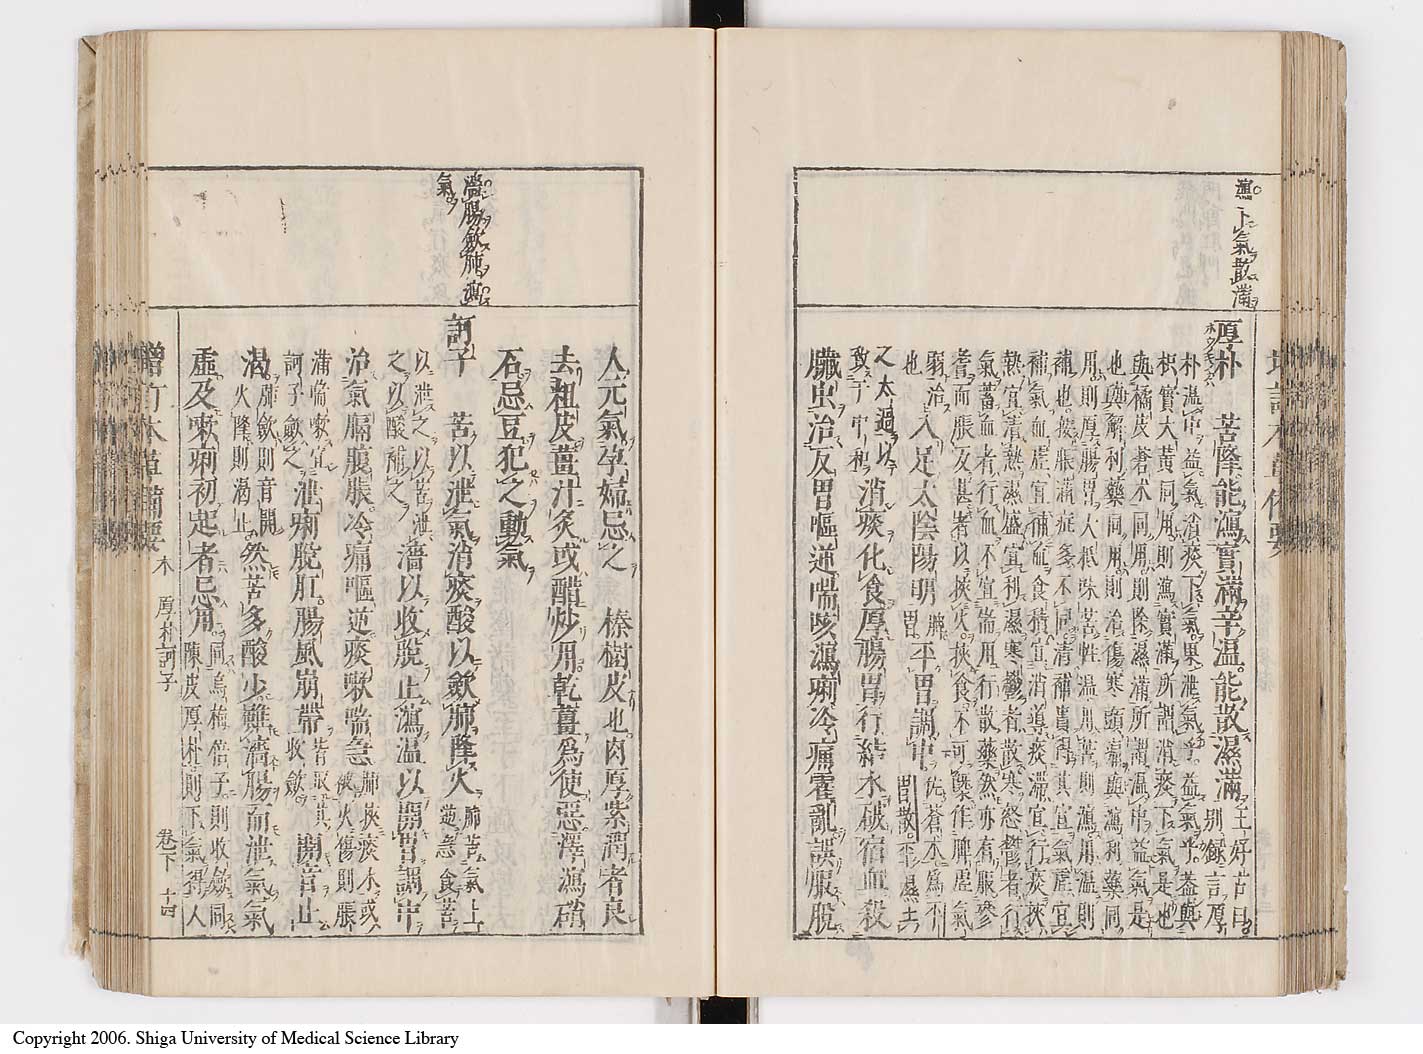 瀉。下氣散滿
厚朴 苦降能瀉實滿辛温能散濕滿 王好古曰。別録言厚
朴温中益氣消痰下氣。果泄氣乎。益氣乎。蓋與
枳實大黃同用則瀉實滿所謂消痰下氣是也
與橘皮蒼术同用則除濕滿所謂温中益氣是
也與解利藥同用則治傷寒頭痛與瀉利藥同
用則厚腸胃大抵味苦性温用苦則瀉用温則
補也。按脹滿症多不同清補貴得其宜氣虚宜
補氣血虚宜補血食積宜消導痰滯宜行痰挾
熱宜清熱濕盛宜利濕寒鬱者散寒怒鬱者行
氣蓄血者行血不宜耑用行散藥然亦有服參
耆而脹反甚者以挾火。挾食不可槩作脾虚氣
弱治 入足太陰陽明 脾胃 平胃調中 佐蒼朮爲平胃散。平濕土
也
之太過以致于中和 消痰化食厚腸胃行結水破宿血殺
臟虫治反胃嘔逆喘咳瀉痢冷痛霍亂誤服脱
人元氣孕婦忌之 榛樹皮也肉厚紫潤者良
去粗皮薑汁炙或醋炒用乾薑爲使惡澤瀉硝
石忌豆犯之動氣
濇腸斂肺瀉氣。
訶子 苦以泄氣消痰酸以斂肺降火 肺苦氣上逆急食苦
以泄之以苦泄之以酸補之 濇以收脫止瀉温以開胃調中
治氣膈腹脹冷痛嘔逆痰嗽喘急 肺挾痰水或被火傷則脹
滿喘嗽宜訶子斂之 泄痢脫肛腸風崩帶 皆取其收斂。 開音止
渴。肺斂則音開火降則渴止 然苦多酸少雖濇腸而泄氣氣
虛及嗽痢初起者忌用。同烏梅倍子則收斂同陳皮厚朴則下氣得人
増訂本草備要 木 厚朴訶子 卷下 十四